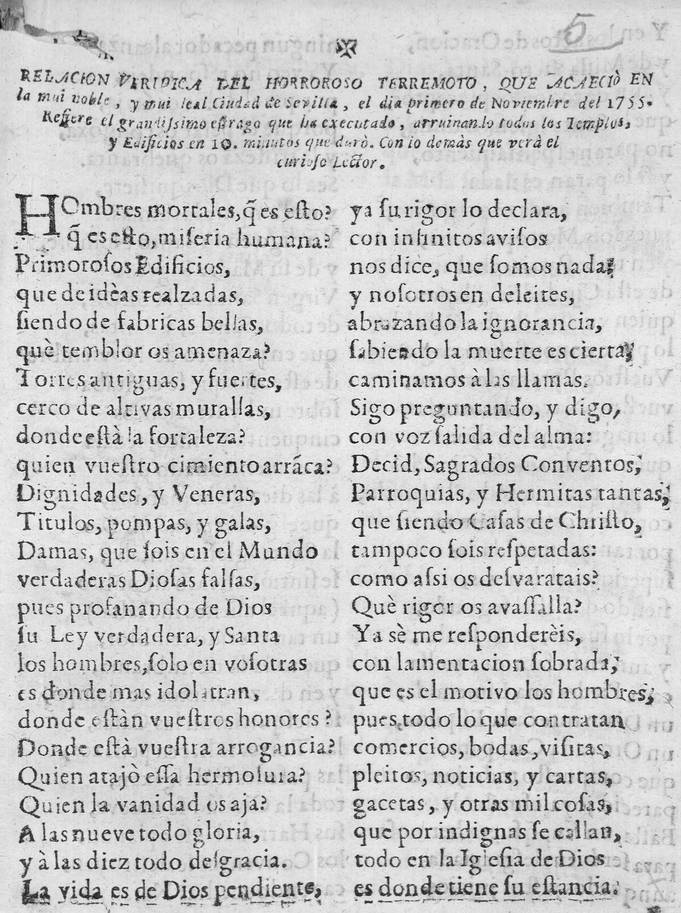 5
RELACION VERIDICA DEL HORROROSO TERREMOTO, QUE ACAECIÒ EN
la mui noble, y mui leal Ciudad de Sevilla, el dia primero de Noviembre del 1755.
Refiere el grandissimo estrago que ha executado, arruinando todos los Templos,
y Edificios en 10. minutos que durò. Con lo demás que verà el
curioso Lector.
HOmbres mortales, q̃ es esto?
q̃ es esto, miseria humana?
Primorosos Edificios,
que de idèas realzadas,
siendo de fabricas bellas,
què temblor os amenaza?
Torres antiguas, y fuertes,
cerco de altivas murallas,
donde està la fortaleza?
quien vuestro cimiento arráca?
Dignidades, y Veneras,
Titulos, pompas, y galas,
Damas, que sois en el Mundo
verdaderas Diosas falsas,
pues profanando de Dios
su Ley verdadera, y Santa
los hombres, solo en vosotras
es donde mas idolatran,
donde estàn vuestros honores?
Donde està vuestra arrogancia?
Quien atajò essa hermosura?
Quien la vanidad os aja?
A las nueve todo gloria,
y à las diez todo desgracia.
La vida es de Dios pendiente,
ya su rigor lo declara,
con infinitos avisos
nos dice, que somos nada;
y nosotros en deleites,
abrazando la ignorancia,
sabiendo la muerte es cierta,
caminamos à las llamas.
Sigo preguntando, y digo,
con voz salida del alma:
Decid, Sagrados Conventos,
Parroquias, y Hermitas tantas,
que siendo Casas de Christo,
tampoco sois respetadas:
como assi os desvaratais?
Què rigor os avassalla?
Ya sè me responderèis,
con lamentacion sobrada,
que es el motivo los hombres,
pues todo lo que contratan
comercios, bodas, visitas,
pleitos, noticias, y cartas,
gacetas, y otras mil cosas,
que por indignas se callan,
todo en la Iglesia de Dios
es donde tiene su estancia.